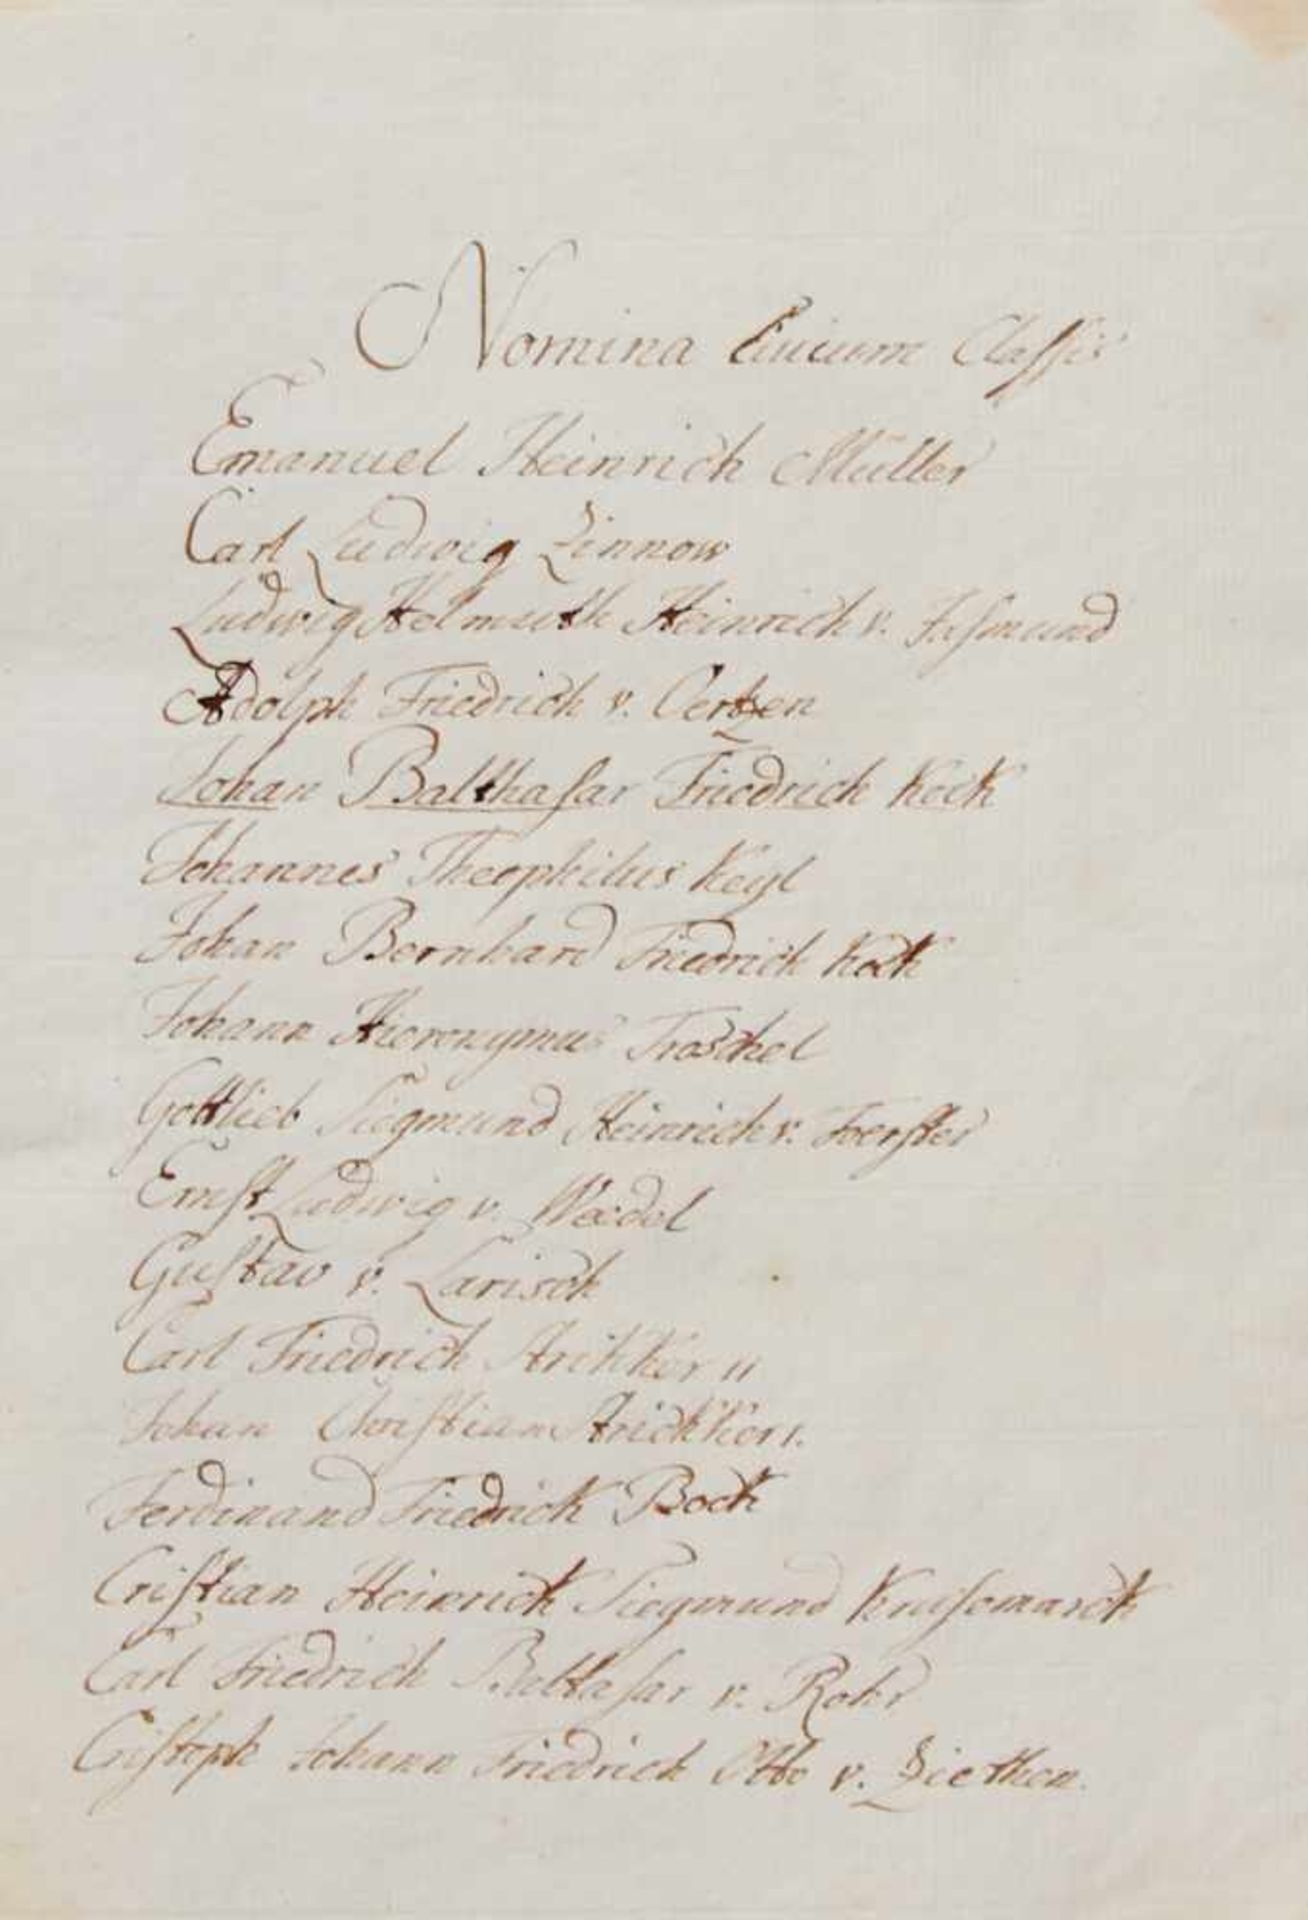 Nomina Civium Classis
Emanuel Heinrich Müller
Carl Ludwig Zinnow
Ludwig Helmuth Heinrich v. Jasmund
Adolph Friedrich v. Oertzen
Johan Balthasar Friedrich Kock
Johannes Theophilus Keyl
Johan Bernhard Friedrich Kock
Johann Hieronymus Troschel
Gottlieb Siegmund Heinrich v. Foerster
Ernst Ludwig v. Weedel
Gustav v. Larisch
Carl Friedrich
Johan Christian
Ferdinand Friedrich Bock
Cristian Heinrich Siegmund Krusemarck
Carl Friedrich Baltasar v. Rohr
Cristoph Johann Friedrich Otto v. Ziethen